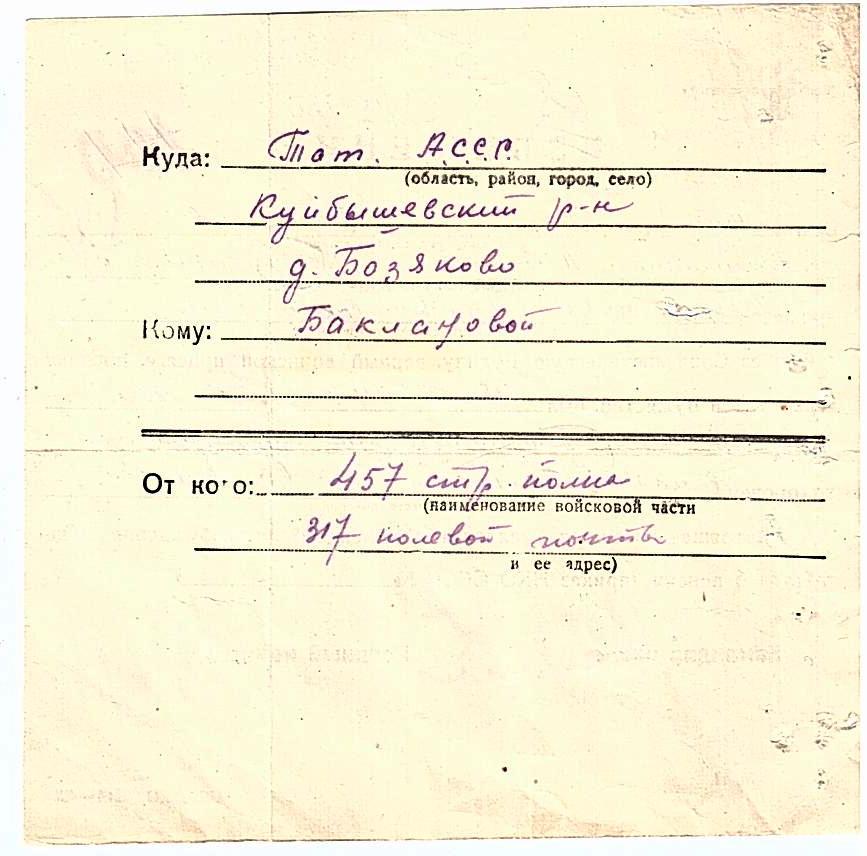 Куда: Тат. А.С.С.Р.
(область, район, город, село)
Куйбышевский р-н
д. Бозяково
Кому: Баклановой
От кого: 457 стр. полка
(наименование войсковой части
317 полевой почты
и ее адрес)